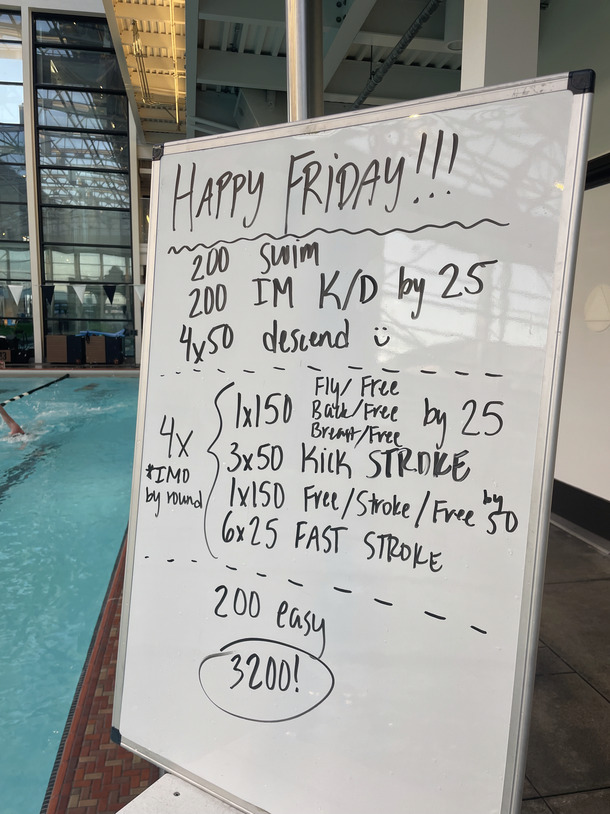 HAPPY FRIDAY!!!
200 swim
200 IM K/D by 25
4x50 descend
4x
*IMO
by round
1x150 Fly/Free
Back/Free
Breast/Free
by 25
3x50 Kick STROKE
1x150 Free/Stroke/Free by 50
6x25 FAST STROKE
200 easy
3200!